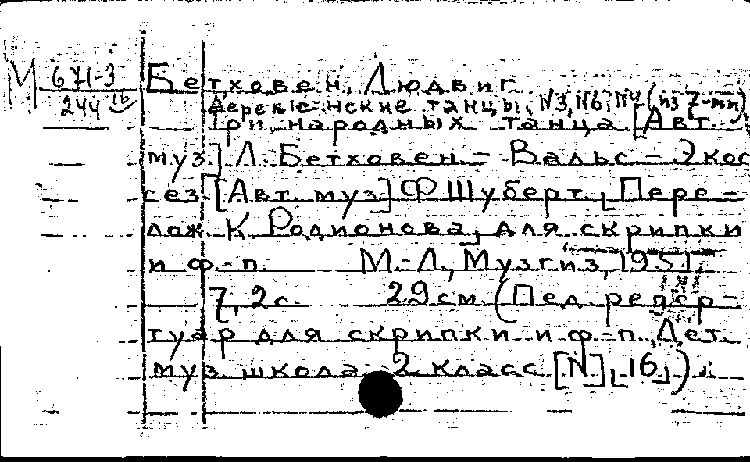 М 671-3 Бетховен, Людвиг
244 Деревенские танцы, N3, N6, N4 (из 7-ми)
Три народных танца [Авт.
муз.] Л. Бетховен - Вальс - Экос
сез [Авт муз] Ф Шуберт, [Пере-
лож. К Родионова, для скрипки
и ф-п. М.-Л., Музгиз, 1951.
7, 2с. 29см (Пед. репер-
туар для скрипки и ф-п. Дет.
муз. школа 2 класс [N], 16,)